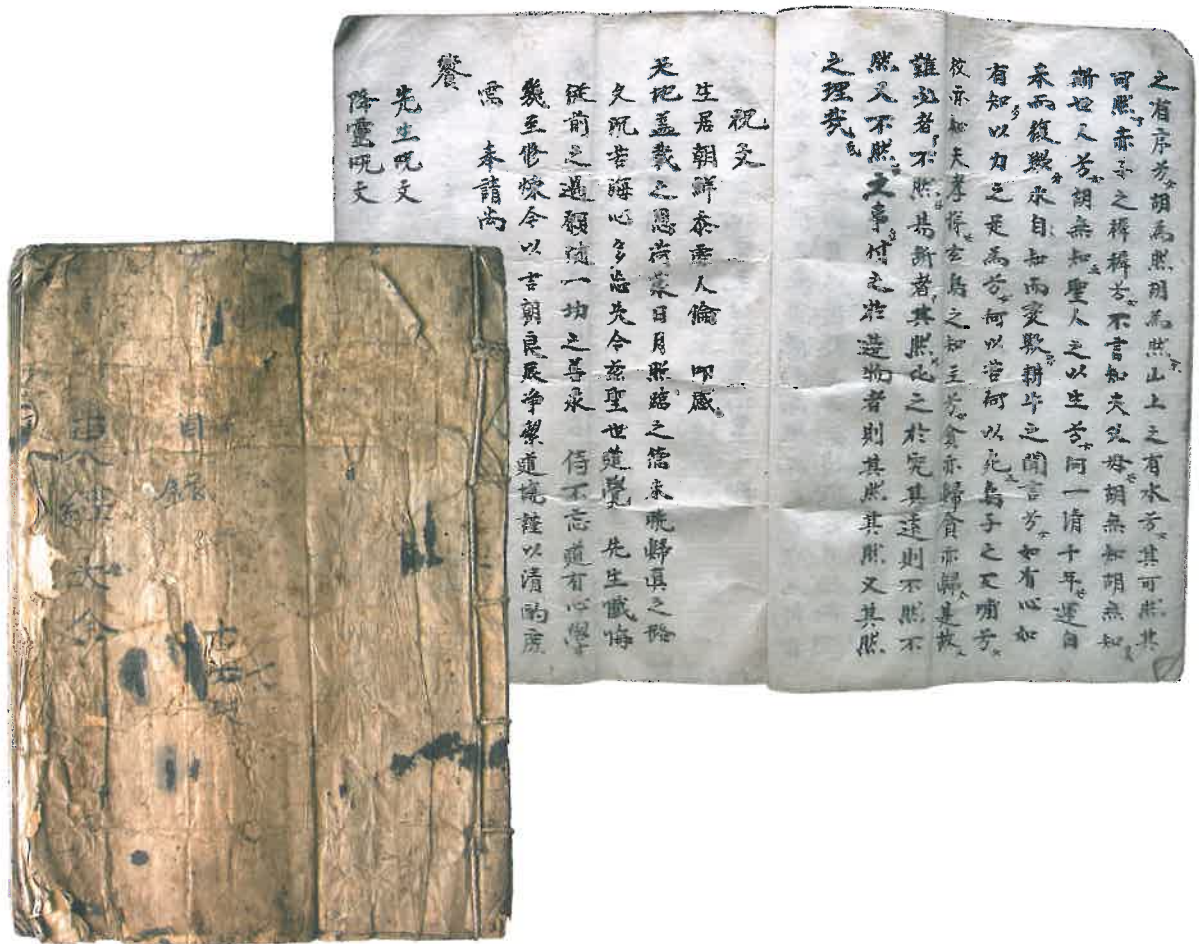 之有序兮胡爲然胡爲然山上之有水兮其可然其
可然赤子之穉穉兮不言知夫父母胡無知胡無知
斯世人兮胡無知聖人之以生兮河一清千年運自
來而復歟水自知而變歟耕牛之聞言兮如有心如
有知以力之足爲兮何以苦何以死烏子之反哺兮
彼亦知夫孝悌玄鳥之知主兮貧亦歸貧亦歸是故
難必者不然易斷者其然比之於究其遠則不然不
然又不然之事付之於造物者則其然其然又其然
之理哉
祝文
生居朝鮮忝處人倫 叩感
天地盖載之恩荷蒙日月照臨之德未曉歸眞之路
久沉苦海心多忘失今玆聖世道覺 先生懺悔
從前之過願隨一切之善永 侍不忘道有心學
幾至修煉今以吉朝良辰净潔道塲謹以清酌庶
需 奉請尚
饗
先生呪文
降靈呪文
東經大全